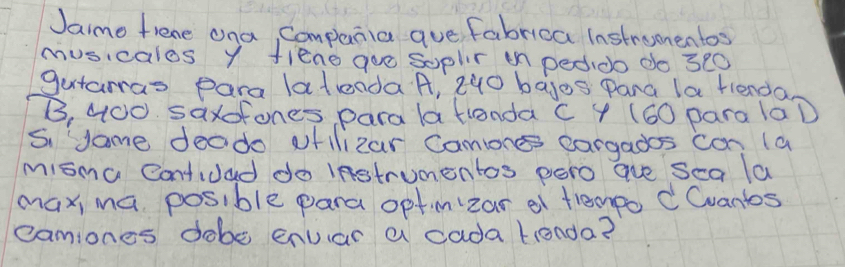 Jaime tiene una Compañia que fabrica Instrumentos
musicales y tiene que suplir un pedido de 320
gutarras para la tienda A, 240 bajos para la tienda
B, 400 saxofones para la tienda C y 160 para la D
Si Jame decide utilizar camiones cargados con la
misma cantidad de instrumentos pero que sea la
maxima posible para optimizar el tiempo ¿Cuantos
camiones debe enviar a cada tienda?